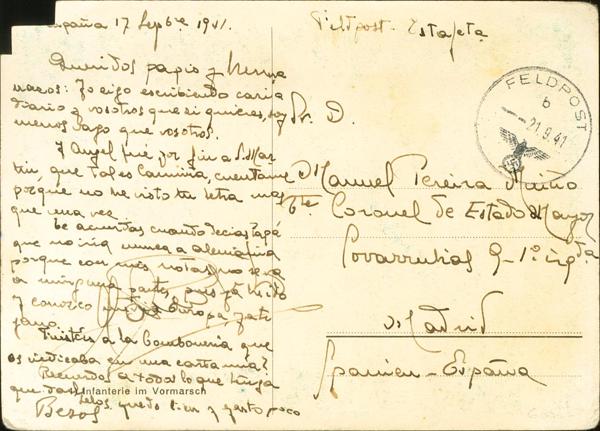 España 17 Sepbre 1941.
Queridos papis y herma
nazos: Yo sigo escribiendo casi a
diario y vosotros que si quieres, soy
menos vago que vosotros.
Y Angel fué por fin a S. Mar
tin, que tal es camina, cuentame
porque no he visto tu letra mas
que una vez.
Te acuerdas cuando decias papá
que no iria nunca a alemania
porque con mis notas no se va
a ninguna parte, pues ya he ido
y conozco Europa, fate
Fuistéis a la Comboneria que
os indicaba en una carta mia?
Recuerdos a todos lo que tenga
que darlos, quedo bien y gasto poco
Besos
Infanterie im Vormarsch
Feldpost - Estafeta
FELDPOST
b
21.9.41
Sr. D.
Manuel Pereira Miño
Tte. Coronel de Estado Mayor
Covarrubias 9 - 1º izqda
Madrid
Spanien - España